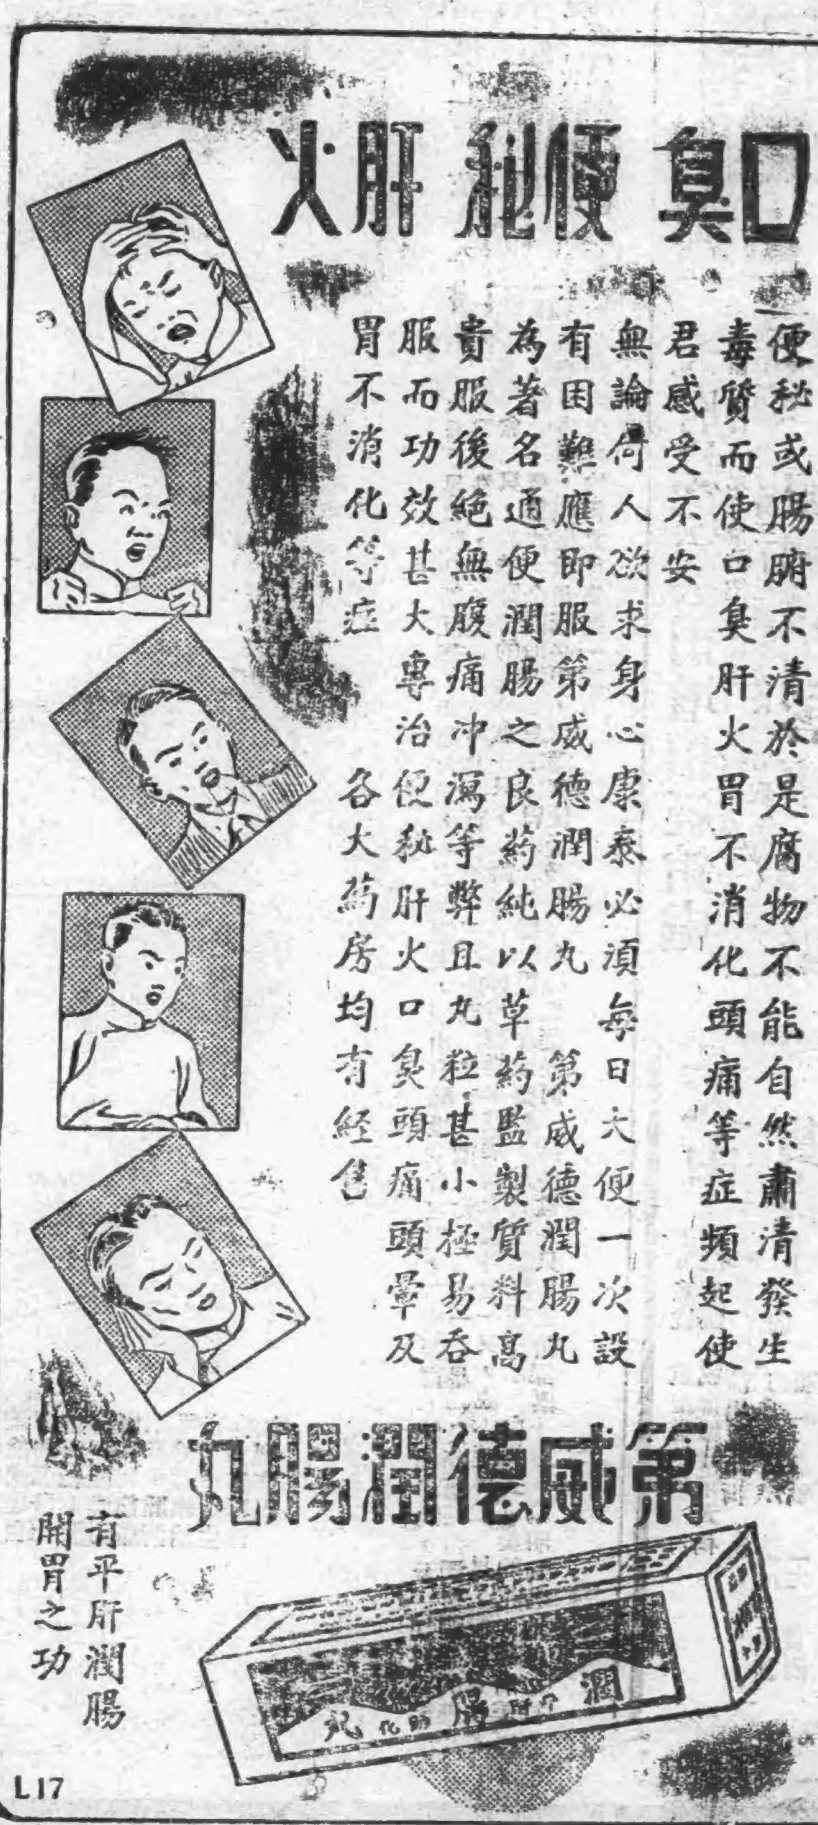 口臭 便秘 肝火
便秘或腸腑不清於是腐物不能自然肅清發生
毒質而使口臭肝火胃不消化頭痛等症頻起使
君感受不安
無論何人欲求身心康泰必須每日大便一次設
有困難應即服第威德潤腸丸 第威德潤腸丸
為著名通便潤腸之良葯純以草葯監製質料高
貴服後絕無腹痛冲瀉等弊且丸粒甚小極易吞
服而功效甚大專治便秘肝火口臭頭痛頭暈及
胃不消化等症 各大葯房均有經售
第威德潤腸丸
潤 腸 助化 丸
有平肝潤腸
開胃之功
L17